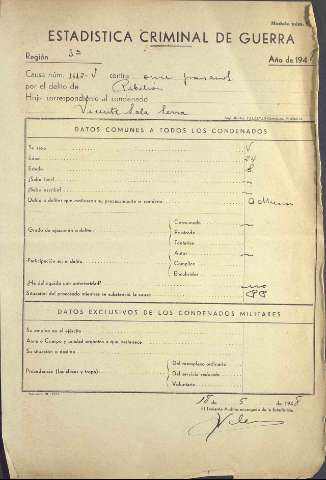 Modelo núm.
ESTADISTICA CRIMINAL DE GUERRA
Región 3ª Año de 194
Causa núm. contra
por el delito de Rebelion
Hoja correspondiente al condenado
Vicente Sala Serra
DATOS COMUNES A TODOS LOS CONDENADOS
Su sexo V
Edad 24
Estado S
¿Sabe leer?
¿Sabe escribir?
Delito o delitos que motivaron su procesamiento o condena
Grado de ejecución o delito
Consumado
Frustrado
Tentativa
Participación en el delito
Autor
Cómplice
Encubridor
¿Ha delinquido con anterioridad? no
Situación del procesado mientras se substanció la causa PP
DATOS EXCLUSIVOS DE LOS CONDENADOS MILITARES
Su empleo en el ejército
Arma o Cuerpo y unidad orgánica a que pertenece
Su situación o destino
Procedencia (las clases y tropa)
Del reemplazo ordinario
Del servicio reducido
Voluntario
18 de 5 de 1948
El Teniente Auditor encargado de la Estadística,